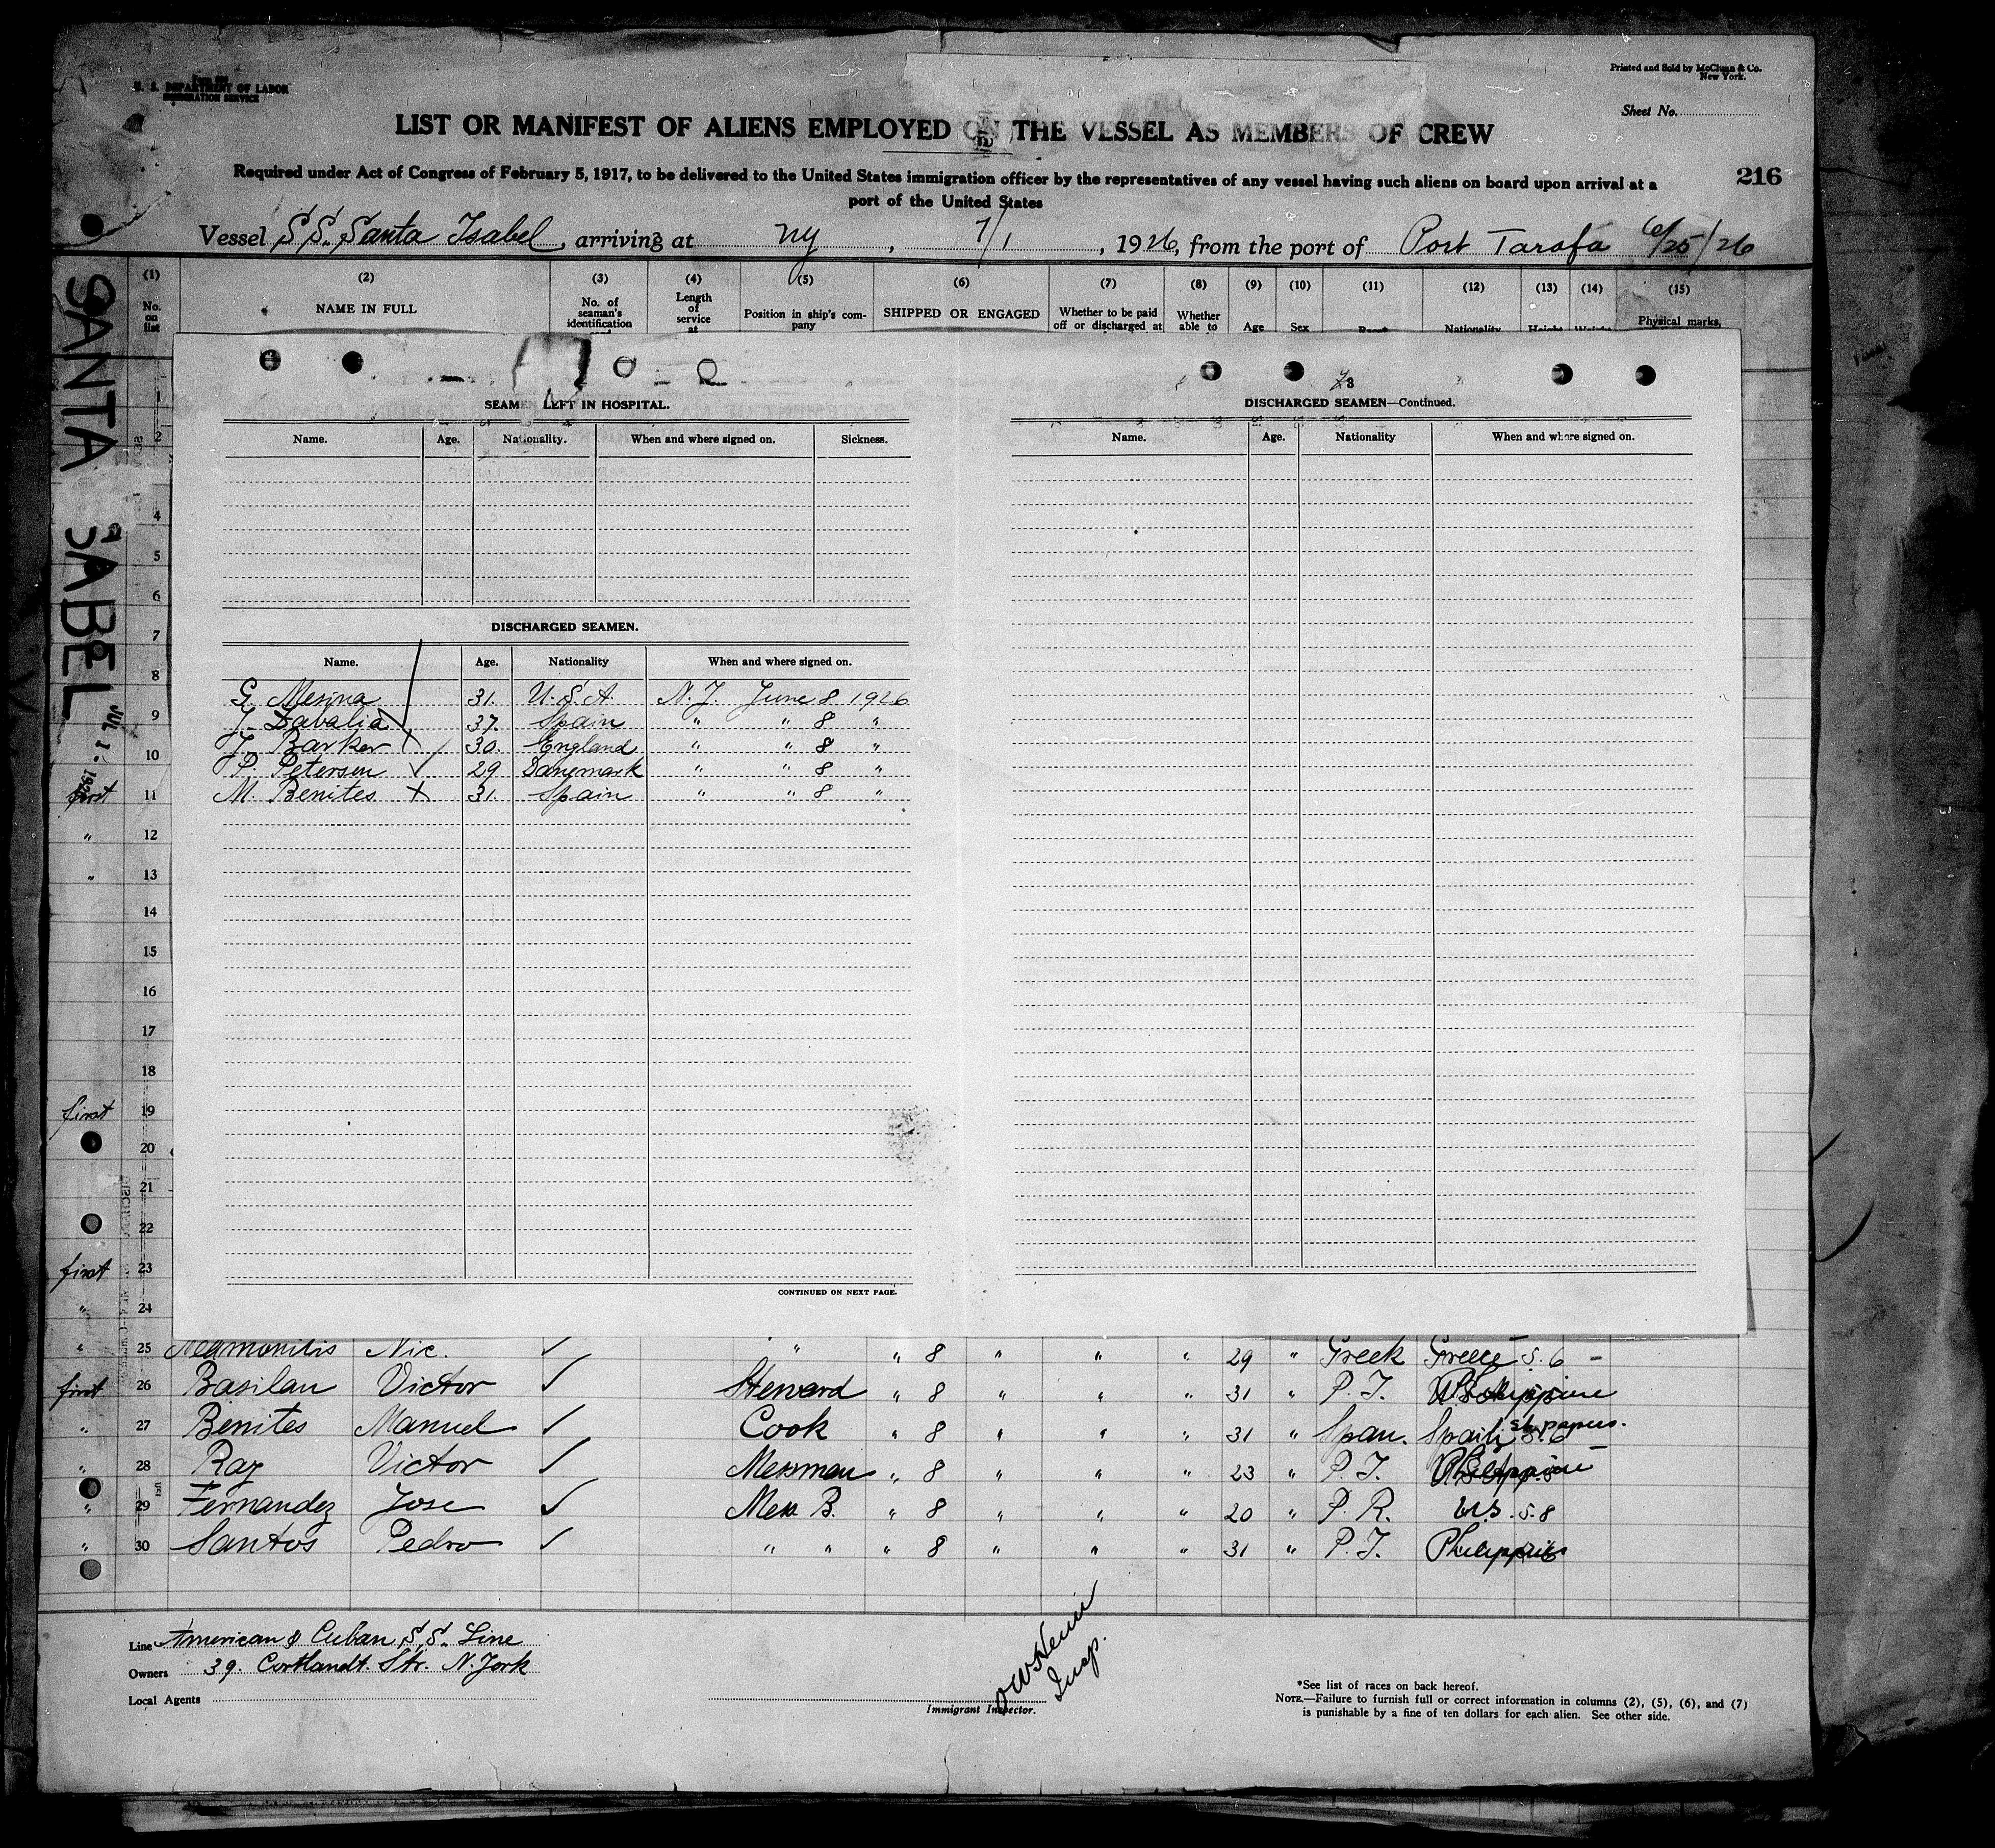 U. S. DEPARTMENT OF LABOR
IMMIGRATION SERVICE
Printed and Sold by McClunn & Co.
New York.
Sheet No.
LIST OR MANIFEST OF ALIENS EMPLOYED ON THE VESSEL AS MEMBERS OF CREW
216
Required under Act of Congress of February 5, 1917, to be delivered to the United States immigration officer by the representatives of any vessel having such aliens on board upon arrival at a
port of the United States
Vessel S.S. Santa Isabel, arriving at NY, 7/1, 1926, from the port of Port Tarafa 6/25/26
(1) (2) (3) (4) (5) (6) (7) (8) (9) (10) (11) (12) (13) (14) (15)
No. on list NAME IN FULL No. of seaman's identification Length of service at Position in ship's company SHIPPED OR ENGAGED Whether to be paid off or discharged at Whether able to Age Sex Race Nationality Height Weight Physical marks,
SANTA ISABEL
JUL 1 - 1926
SEAMEN LEFT IN HOSPITAL.
Name. Age. Nationality. When and where signed on. Sickness.
DISCHARGED SEAMEN.
Name. Age. Nationality When and where signed on.
G. Mesina 31. U.S.A. N.J. June 8 1926
J. Labalia 37. Spain " " 8 "
J. Barker X 30. England " " 8 "
P. Petersen ✓ 29 Danemark " " 8 "
M. Benites X 31. Spain " " 8 "
CONTINUED ON NEXT PAGE.
3
DISCHARGED SEAMEN—Continued.
Name. Age. Nationality When and where signed on.
1
2
4
5
6
7
8
9
10
first 11
" 12
" 13
14
15
16
17
18
first 19
20
21
22
first 23
" 24
" 25 Nic. ✓ " " 8 " " " 29 " Greek Greece 5.6 -
first 26 Basilan Victor ✓ Steward " 8 " " " 31 " P.I. Philippine
" 27 Benites Manuel ✓ Cook " 8 " " " 31 " Span. Spain 5.6 papers.
" 28 Ray Victor ✓ Messman " 8 " " " 23 " P.I. Philippine
" 29 Fernandez Jose ✓ Mess B. " 8 " " " 20 " P.R. U.S. 5.8
" 30 Santos Pedro ✓ " " " 8 " " " 31 " P.I. Philippine
Line American & Cuban S.S. Line
Owners 39. Cortlandt. Str. N.York
Local Agents
Insp.
Immigrant Inspector.
*See list of races on back hereof.
NOTE.—Failure to furnish full or correct information in columns (2), (5), (6), and (7)
is punishable by a fine of ten dollars for each alien. See other side.